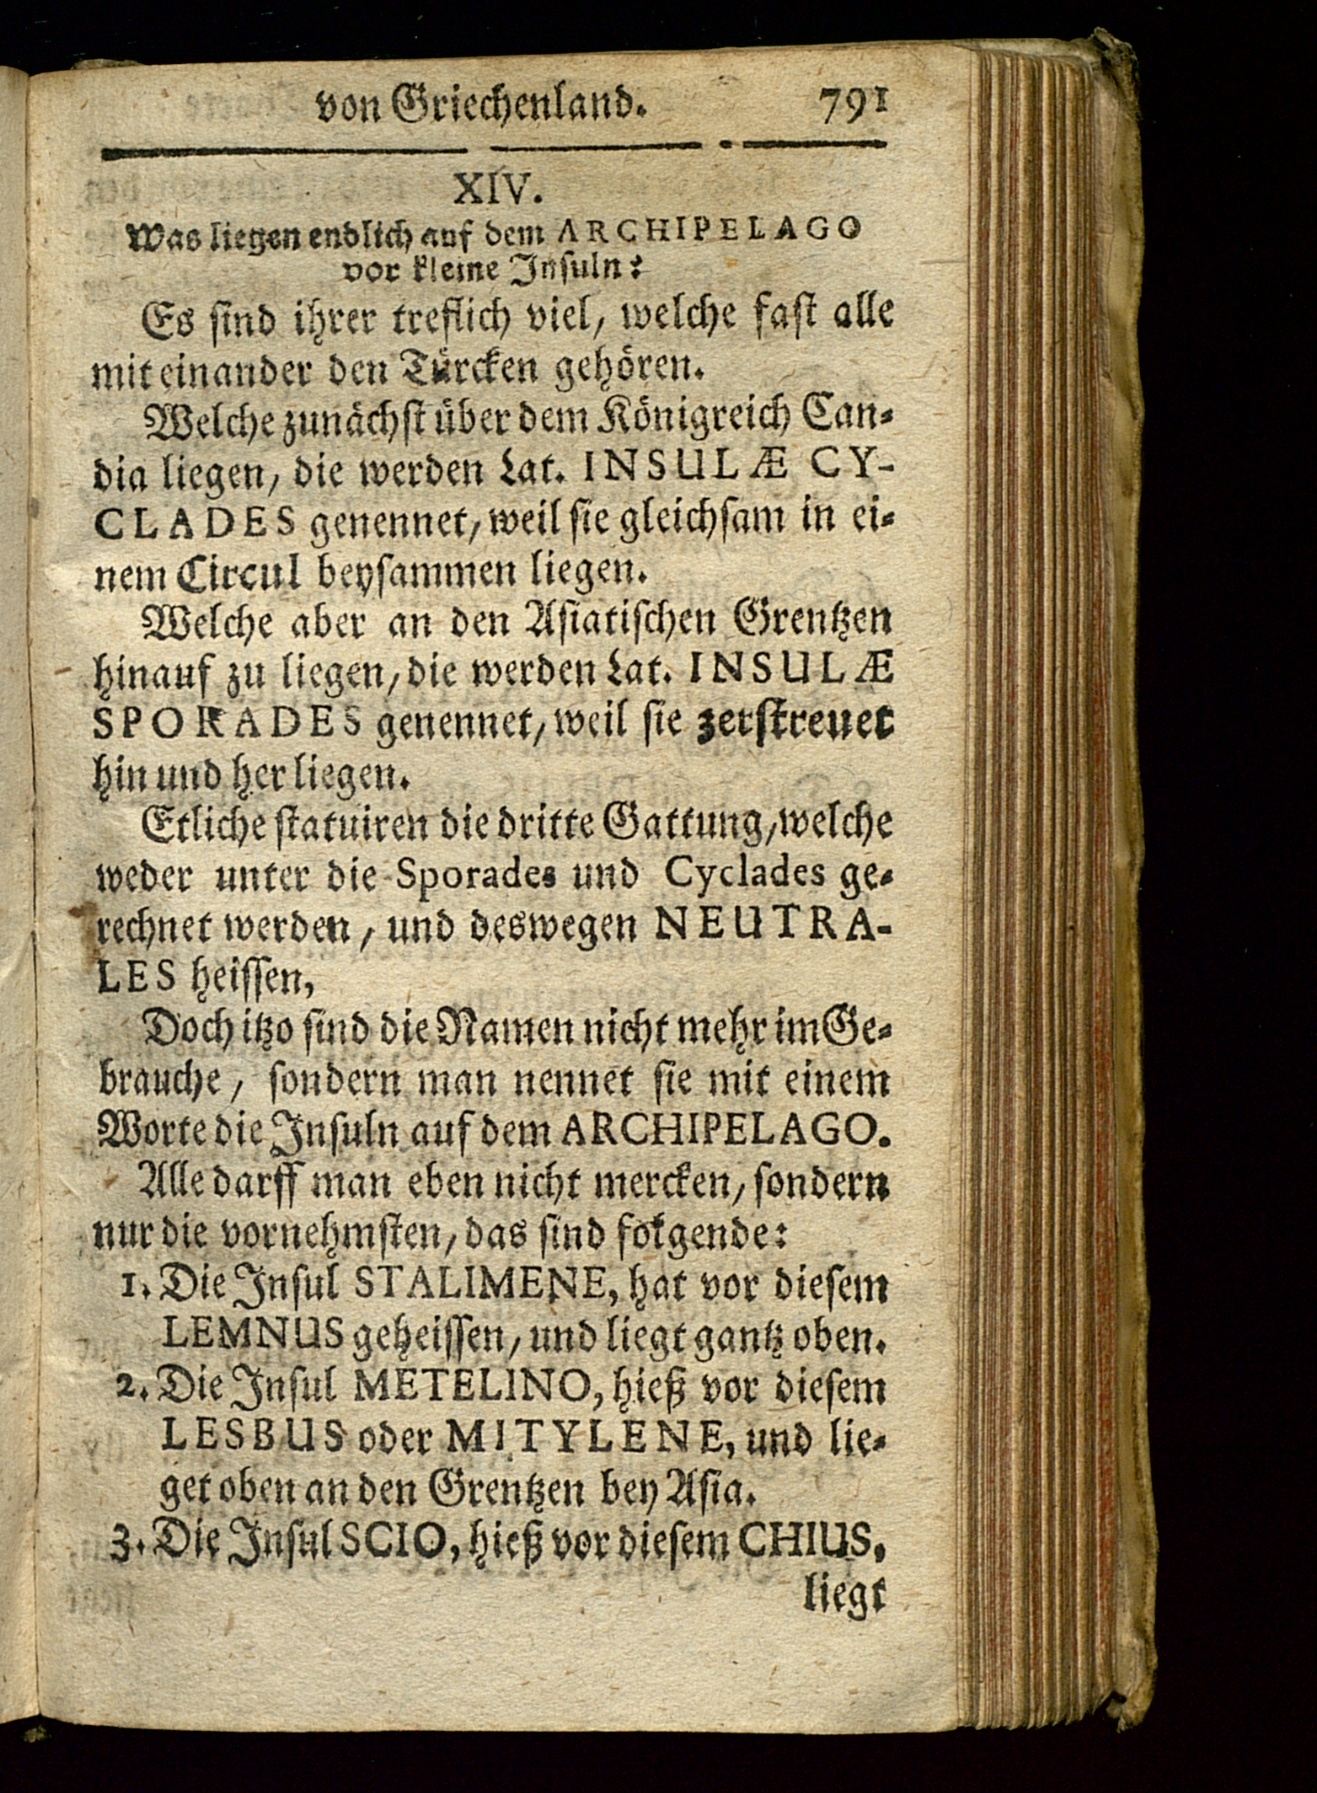 von Griechenland. 791
XIV.
Was liegen endlich auf dem ARCHIPELAGO
vor kleine Insuln?
Es sind ihrer treflich viel, welche fast alle
mit einander den Türcken gehören.
Welche zunächst über dem Königreich Can-
dia liegen, die werden Lat. INSULÆ CY-
CLADES genennet, weil sie gleichsam in ei-
nem Circul beysammen liegen.
Welche aber an den Asiatischen Grentzen
hinauf zu liegen, die werden Lat. INSULÆ
SPORADES genennet, weil sie zerstreuet
hin und her liegen.
Etliche statuiren die dritte Gattung, welche
weder unter die Sporades und Cyclades ge-
rechnet werden, und deswegen NEUTRA-
LES heissen,
Doch itzo sind die Namen nicht mehr im Ge-
brauche, sondern man nennet sie mit einem
Worte die Insuln auf dem ARCHIPELAGO.
Alle darff man eben nicht mercken, sondern
nur die vornehmsten, das sind folgende:
1. Die Insul STALIMENE, hat vor diesem
LEMNUS geheissen, und liegt gantz oben.
2. Die Insul METELINO, hieß vor diesem
LESBUS oder MITYLENE, und lie-
get oben an den Grentzen bey Asia.
3. Die Insul SCIO, hieß vor diesem CHIUS,
liegt